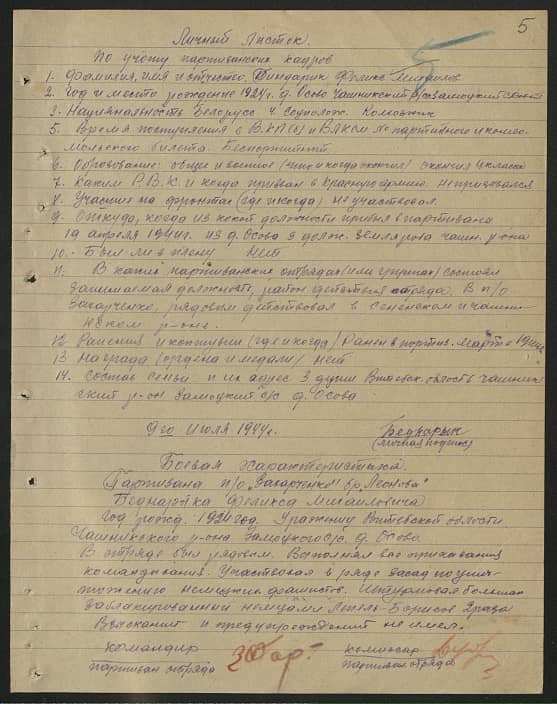 5
Личный Листок.
По учету партизанских кадров
1. Фамилия, имя и отчество. Феликс
2. Год и место рождения 1924 г. д. Осово Чашникский Замоцкий
3. Национальность Белорус 4. Соцполож. Колхозник
5. Время поступления в ВКП(б) и ВЛКСМ № партийного и комсо-
мольского билета. Беспартийный
6. Образование: общее и военное (что и когда окончил) окончил 4 класса
7. Каким Р.В.К. и когда призван в Красную армию. Не призывался
8. Участие на фронтах (где и когда) Не участвовал
9. Откуда, когда из какой должности прибыл в партизаны
19 апреля 1944 г. из д. Осова з долж. чашн. р-она
10. Был ли в плену нет
11. В каких партизанских отрядах (или группах) состоял
занимаемая должность, район действия отряда. В п/о
Захарченко, рядовым действовал в сененском и чашни-
кском р-оне.
12 Ранения и контузии (где и когда) Ранен в партиз. Март 1944 г.
13 Награда (ордена и медали) нет
14. Состав семьи и их адрес 3 души Витебск. область чашник-
ский р-он Замоцкий с/с д. Осова
9го Июля 1944 г. Беднарык
(личная подпись)
Боевая характеристика
Партизана п/о "Захарченко" бр. "Леонова"
Феликса Михаиловича
Год рожд. 1924 год. Уражинец Витебской области
Чашникского р-она Замоцкого с/с д. Осово
В отряде был рядовым. Выполнял все приказания
командования. Участвовал в ряде засад по унич-
тожению немецких фашистов. Штурмовал большак
заблокированный немцами Лепель-Борисов
Взысканий и предупреждений не имел.
командир комиссар
партизан отряда партизан отряда